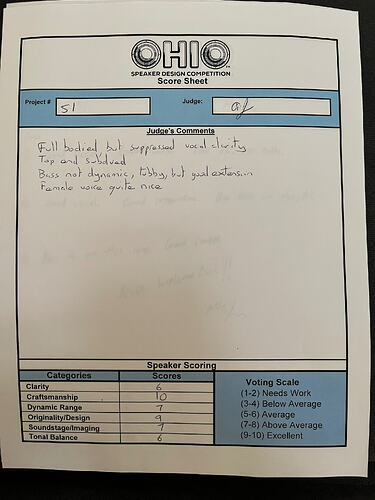 OHIO
SPEAKER DESIGN COMPETITION
Score Sheet
Project # 51 Judge:
Judge's Comments
Full bodied but suppressed vocal clarity
Top end subdued
Bass not dynamic, tubby, but good extension
Female voice quite nice
Speaker Scoring
Categories Scores
Clarity 6
Craftsmanship 10
Dynamic Range 7
Originality/Design 9
Soundstage/Imaging 7
Tonal Balance 6
Voting Scale
(1-2) Needs Work
(3-4) Below Average
(5-6) Average
(7-8) Above Average
(9-10) Excellent